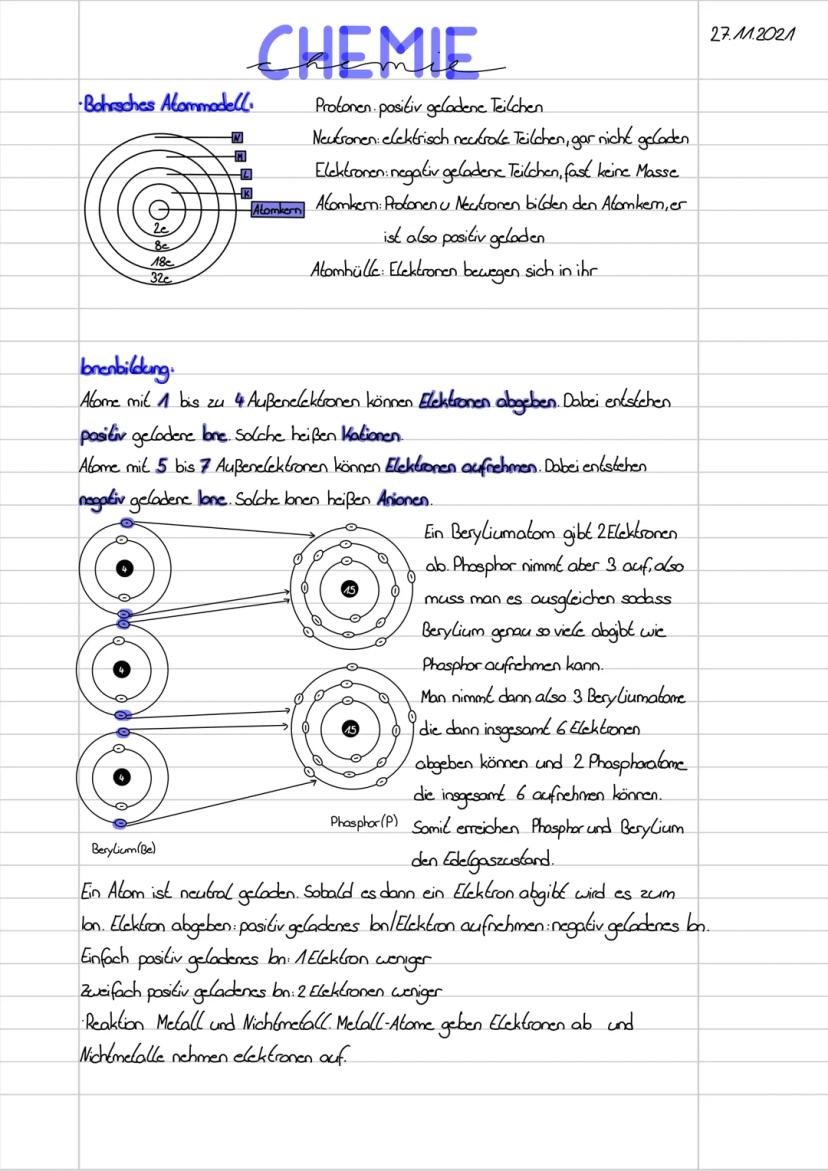 CHEMIE
chemie
27.11.2021
·Bohrsches Atommodell:
N
M
L
K
Atomkern
2e
8e
18e
32e
Protonen: positiv geladene Teilchen
Neutronen: elektrisch neutrale Teilchen, gar nicht geladen
Elektronen: negativ geladene Teilchen, fast keine Masse
Atomkern: Protonen u Neutronen bilden den Atomkern, er
ist also positiv geladen
Atomhülle: Elektronen bewegen sich in ihr
Ionenbildung:
Atome mit 1 bis zu 4 Außenelektronen können Elektronen abgeben. Dabei entstehen
positiv geladene Ione. Solche heißen Kationen.
Atome mit 5 bis 7 Außenelektronen können Elektronen aufnehmen. Dabei entstehen
negativ geladene Ione. Solche Ionen heißen Anionen.
4
4
4
15
15
Berylium(Be)
Phosphor(P)
Ein Beryliumatom gibt 2 Elektronen
ab. Phosphor nimmt aber 3 auf, also
muss man es ausgleichen sodass
Berylium genau so viele abgibt wie
Phosphor aufnehmen kann.
Man nimmt dann also 3 Beryliumatome
die dann insgesamt 6 Elektronen
abgeben können und 2 Phosphoratome
die insgesamt 6 aufnehmen können.
Somit erreichen Phosphor und Berylium
den Edelgaszustand.
Ein Atom ist neutral geladen. Sobald es dann ein Elektron abgibt wird es zum
Ion. Elektron abgeben: positiv geladenes Ion/Elektron aufnehmen: negativ geladenes Ion.
Einfach positiv geladenes Ion: 1 Elektron weniger
Zweifach positiv geladenes Ion: 2 Elektronen weniger
·Reaktion Metall und Nichtmetall. Metall-Atome geben Elektronen ab und
Nichtmetalle nehmen elektronen auf.